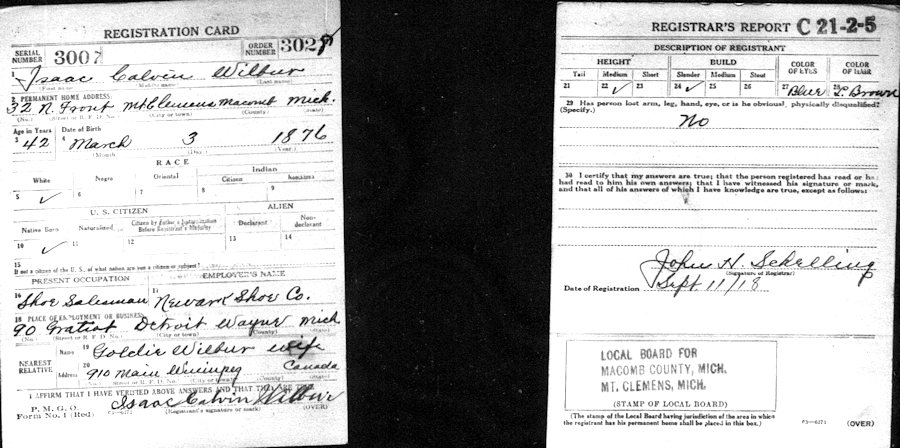 REGISTRATION CARD
SERIAL NUMBER 3007 ORDER NUMBER 3028
1 Isaac Calvin Wilbur
(First name) (Middle name) (Last name)
2 PERMANENT HOME ADDRESS:
32 N. Front Mt Clemens Macomb Mich.
(No.) (Street or R. F. D. No.) (City or town) (County) (State)
Age in Years Date of Birth
3 42 4 March 3 1876
(Month) (Day) (Year)
RACE
White Negro Oriental Indian
Citizen Noncitizen
5 ✓ 6 7 8 9
U. S. CITIZEN ALIEN
Native Born Naturalized Citizen by Father's Naturalization Before Registrant's Majority Declarant Non-declarant
10 ✓ 11 12 13 14
15
If not a citizen of the U. S., of what nation are you a citizen or subject?
PRESENT OCCUPATION EMPLOYER'S NAME
16 Shoe Salesman 17 Newark Shoe Co.
18 PLACE OF EMPLOYMENT OR BUSINESS:
90 Gratiot Detroit Wayne Mich
(No.) (Street or R. F. D. No.) (City or town) (County) (State)
NEAREST RELATIVE Name 19 Goldie Wilbur wife
Address 20 910 Main Winnipeg Canada
(No.) (Street or R. F. D. No.) (City or town) (State)
I AFFIRM THAT I HAVE VERIFIED ABOVE ANSWERS AND THAT THEY ARE TRUE
P. M. G. O.
Form No. 1 (Red) Isaac Calvin Wilbur
(Registrant's signature or mark) (OVER)
REGISTRAR'S REPORT C 21-2-5
DESCRIPTION OF REGISTRANT
HEIGHT BUILD COLOR OF EYES COLOR OF HAIR
Tall Medium Short Slender Medium Stout
21 22 ✓ 23 24 ✓ 25 26 27 Blue 28 L. Brown
29 Has person lost arm, leg, hand, eye, or is he obviously physically disqualified?
(Specify.) No
30 I certify that my answers are true; that the person registered has read or has
had read to him his own answers; that I have witnessed his signature or mark,
and that all of his answers of which I have knowledge are true, except as follows:
John H. Schelling
(Signature of Registrar)
Date of Registration Sept 11/18
LOCAL BOARD FOR
MACOMB COUNTY, MICH.
MT. CLEMENS, MICH.
(STAMP OF LOCAL BOARD)
(The stamp of the Local Board having jurisdiction of the area in which
the registrant has his permanent home shall be placed in this box.)
03—6171 (OVER)